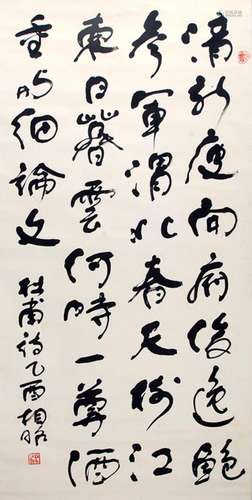 清新庾開府俊逸鮑
參軍渭北春天樹江
東日暮雲何時一尊酒
重與細論文
杜甫詩乙酉